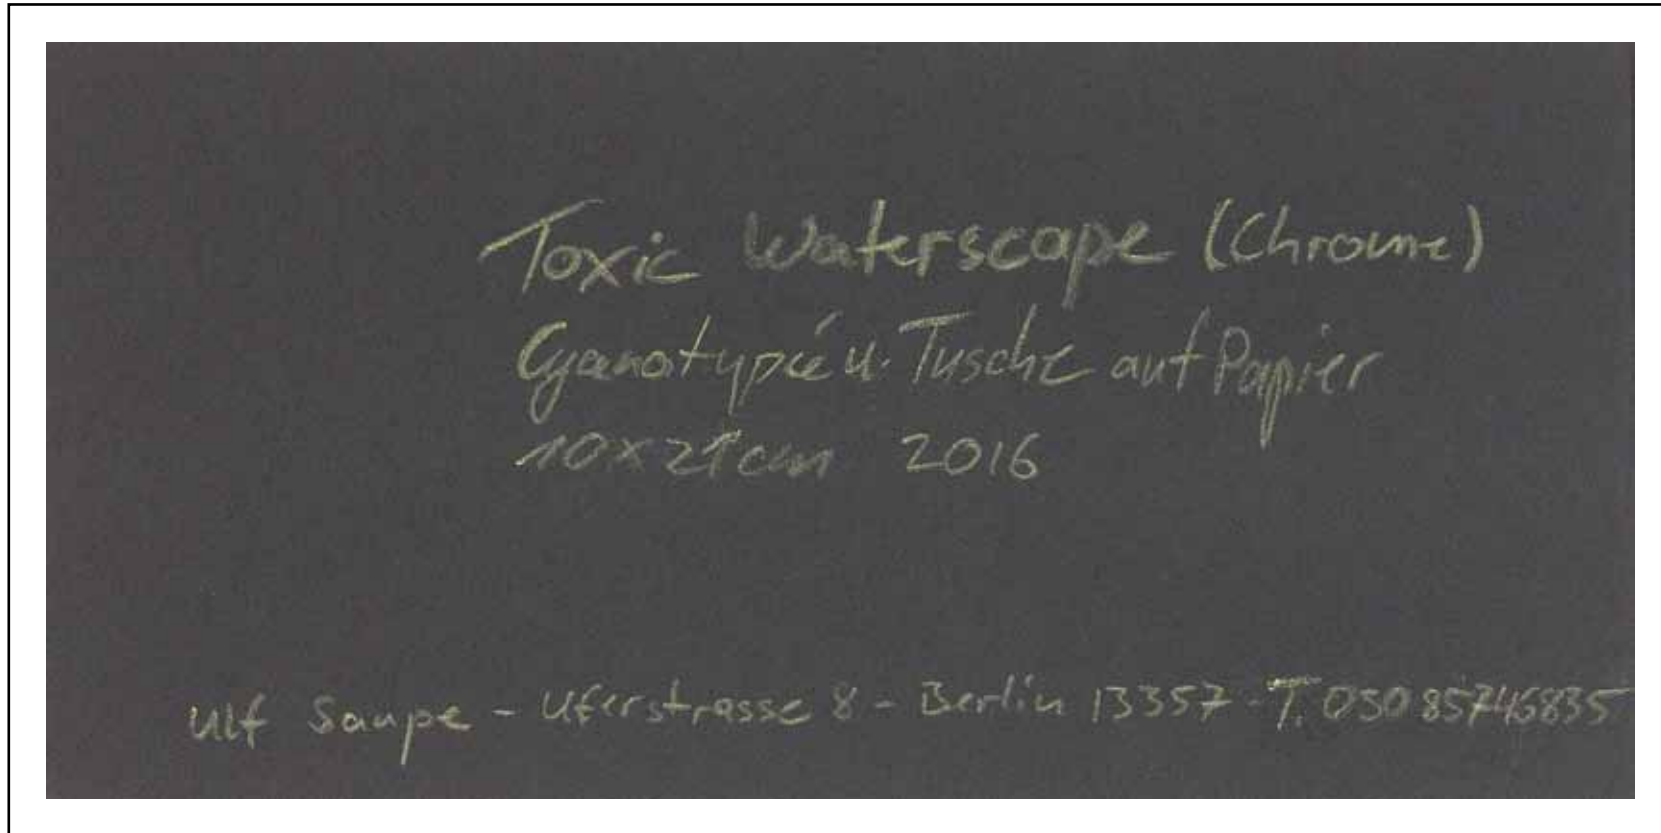 Toxic Waterscape (Chrome)
Cyanotypie u. Tusche auf Papier
10x21cm 2016
Ulf Saupe - Uferstrasse 8 - Berlin 13357 - T. 030 85746835